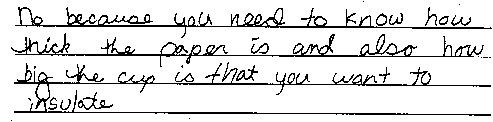 No because you need to know how
thick the paper is and also how
big the cup is that you want to
insulate